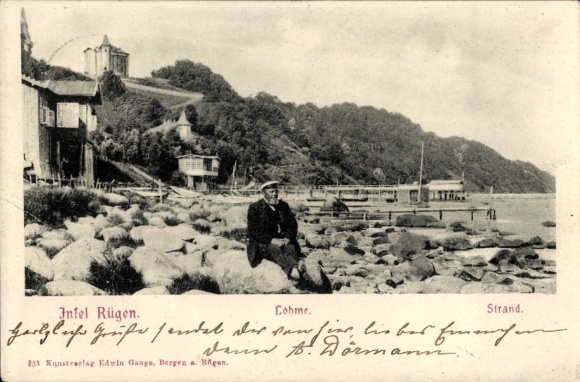 Insel Rügen. Lohme. Strand.
Herzliche Grüße sendet dir von hier liebes Emmchen
denn A. Dörmann
293 Kunstverlag Edwin Gangs, Bergen a. Rügen.